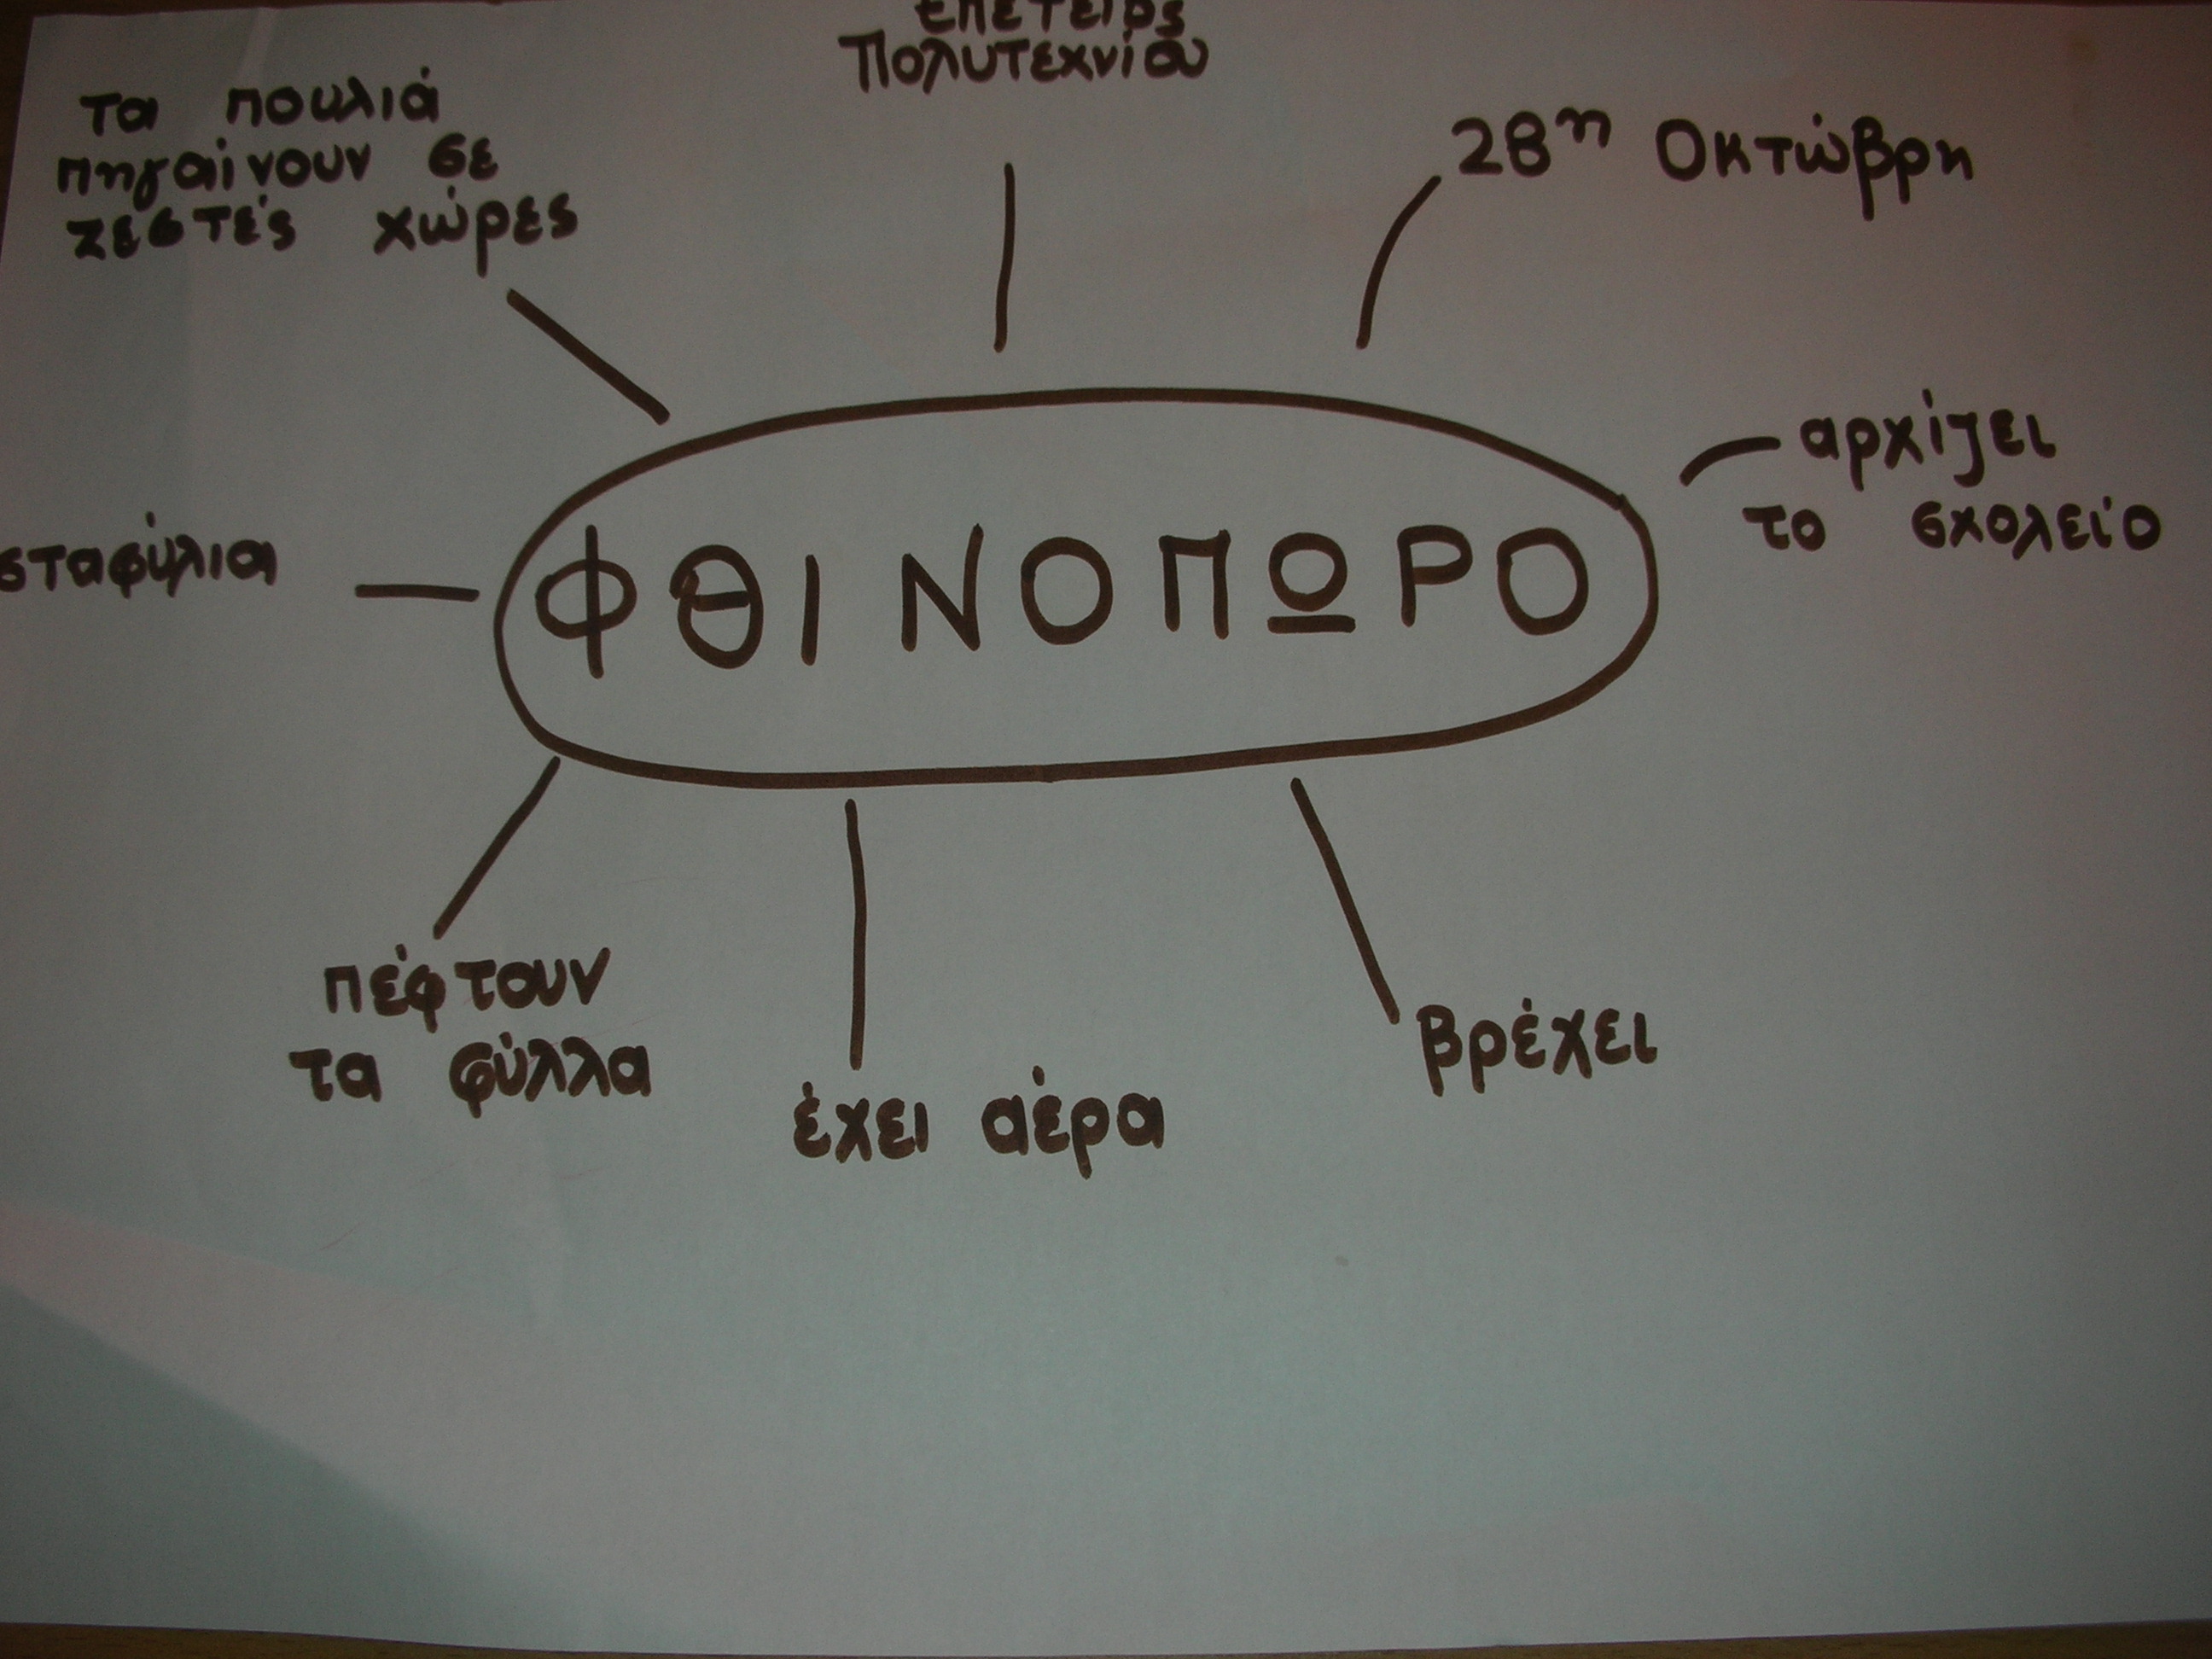 επέτειος
Πολυτεχνίου
τα πουλιά
πηγαίνουν σε
ζεστές χώρες
28η Οκτώβρη
αρχίζει
το σχολείο
σταφύλια
ΦΘΙΝΟΠΩΡΟ
πέφτουν
τα φύλλα
έχει αέρα
βρέχει